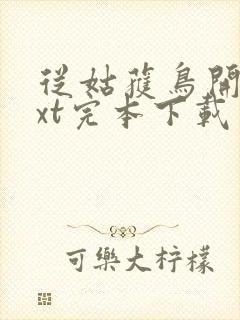 从姑蒦鸟開
xt完本下載
可樂大柠檬